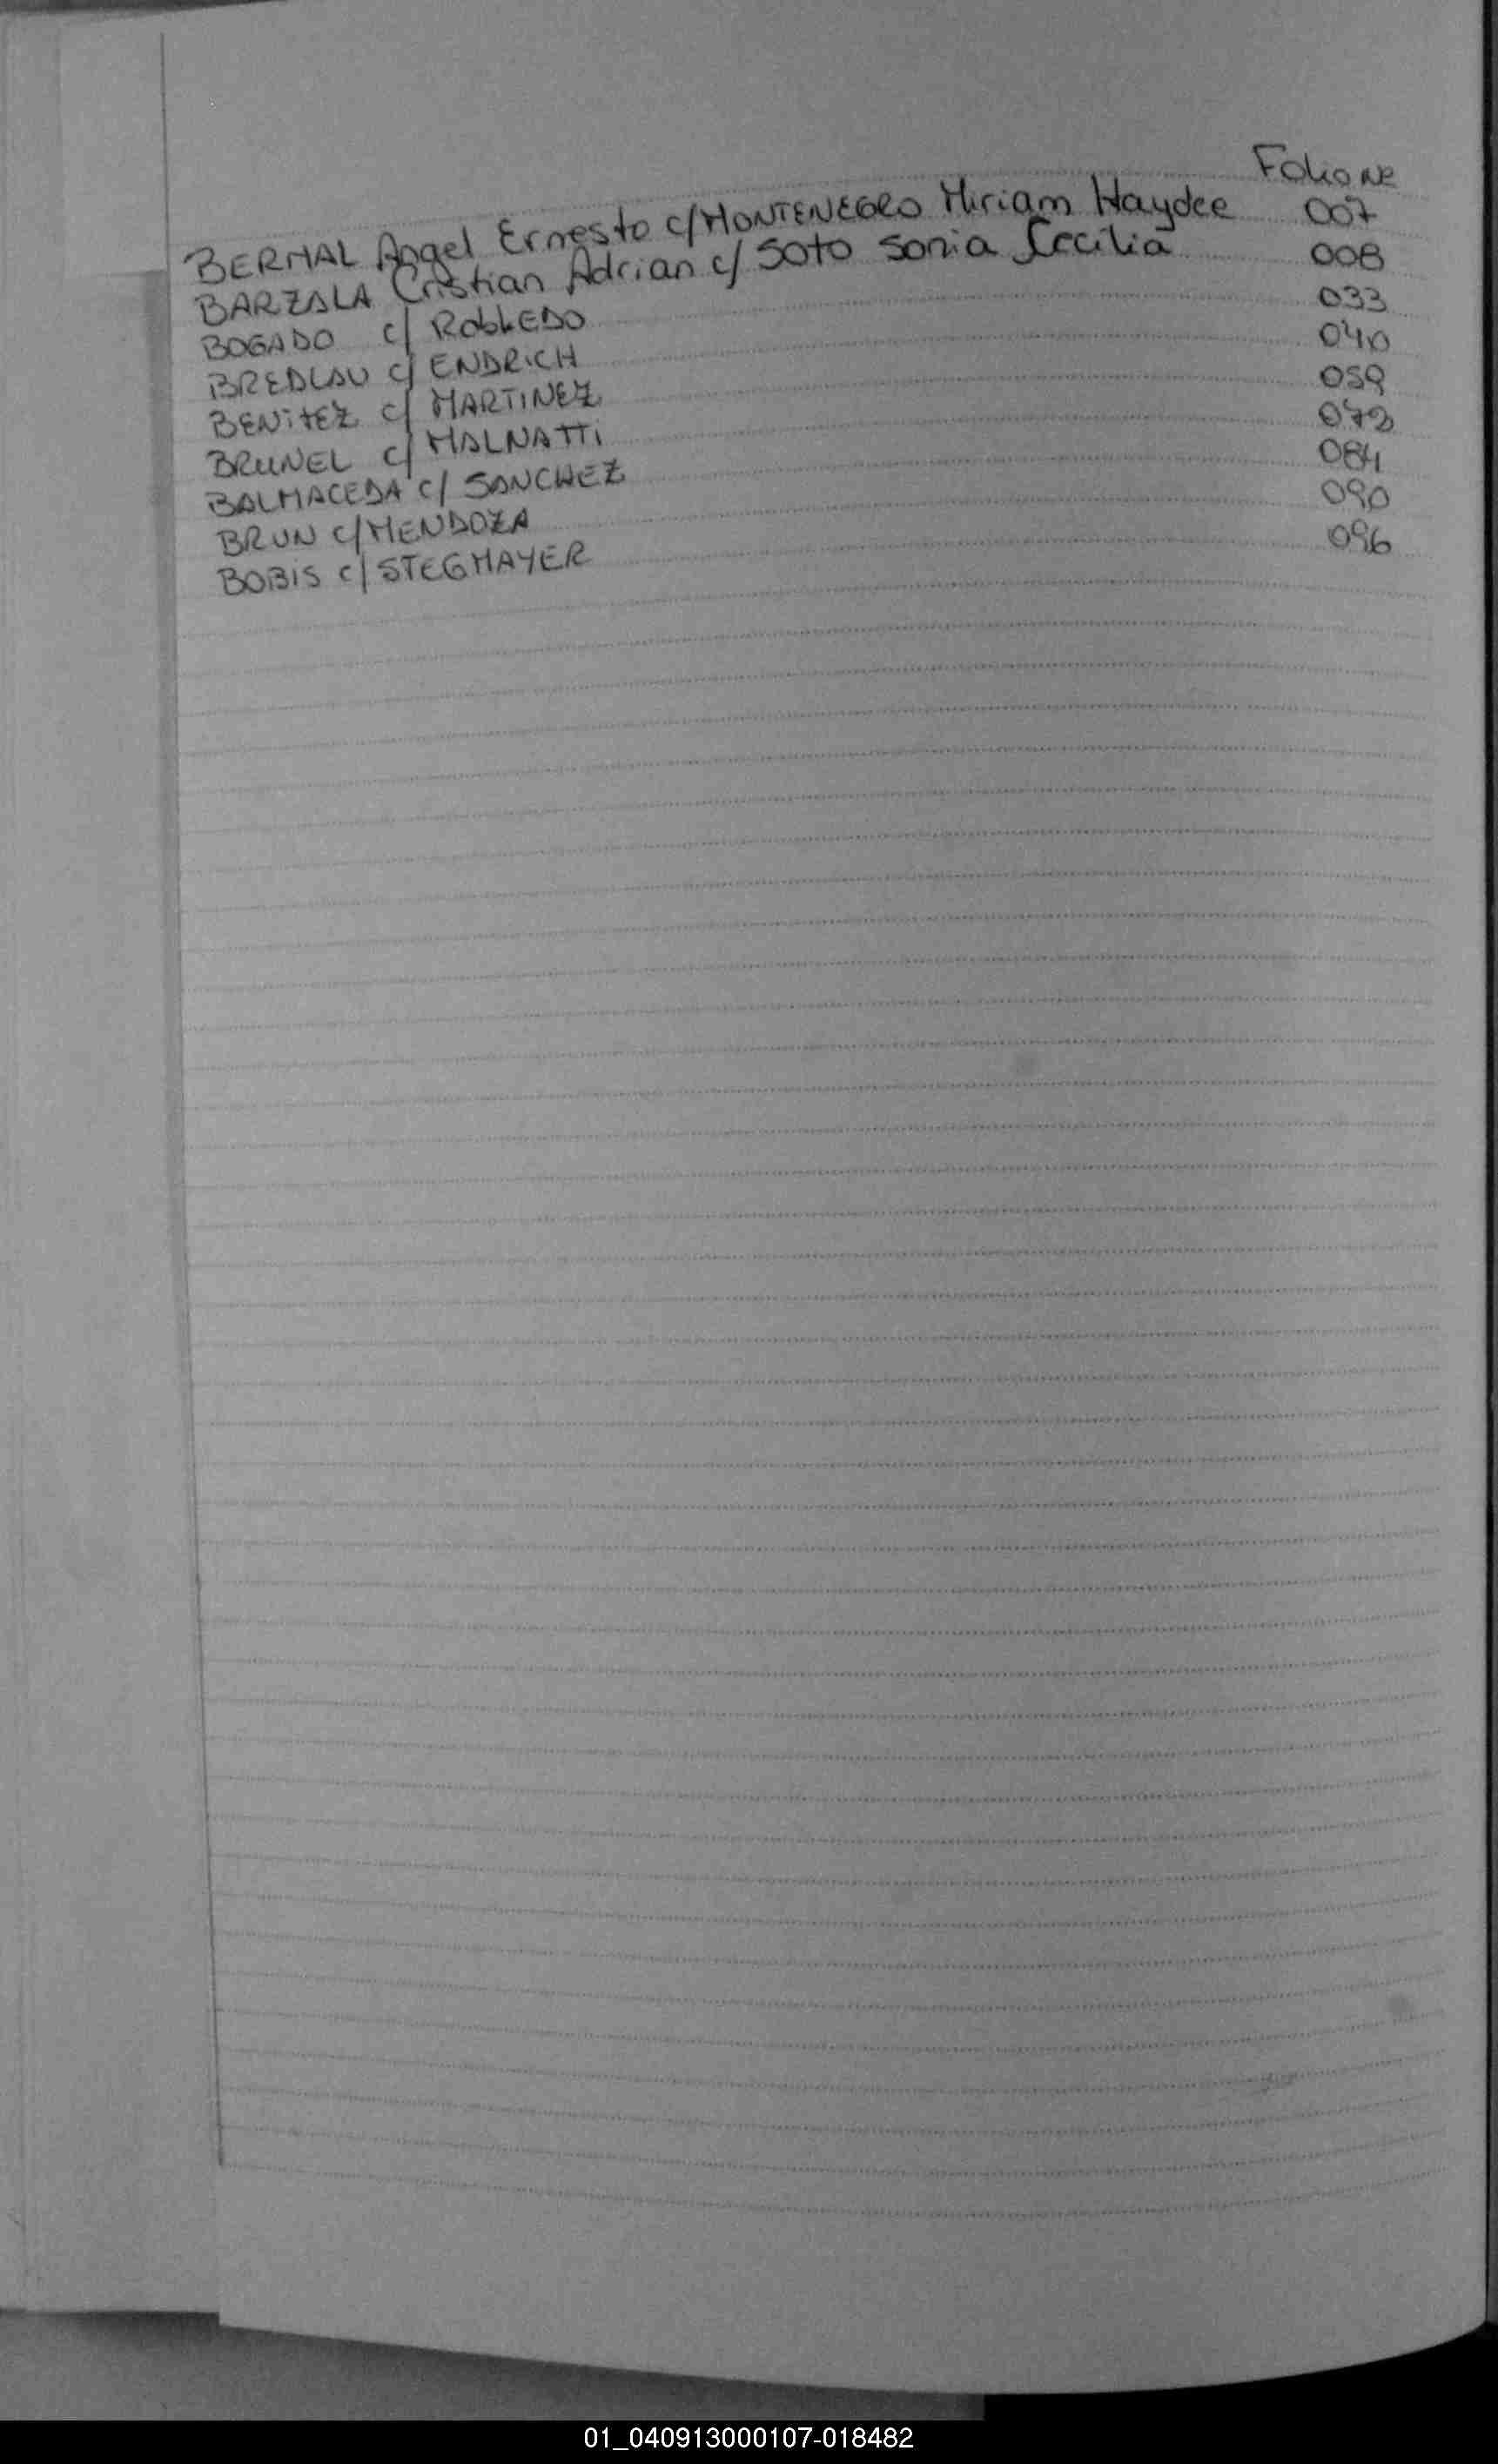 Folio Nº
BERNAL Angel Ernesto c/ MONTENEGRO Miriam Haydee 007
BARZALA Cristian Adrian c/ SOTO Sonia Cecilia 008
BOGADO c/ ROBLEDO 033
BREDLAU c/ ENDRICH 040
BENITEZ c/ MARTINEZ 059
BRUNEL c/ MALNATTI
BALMACEDA c/ SANCHEZ 084
BRUN c/ MENDOZA 090
BOBIS c/ STEGMAYER 096
01_040913000107-018482